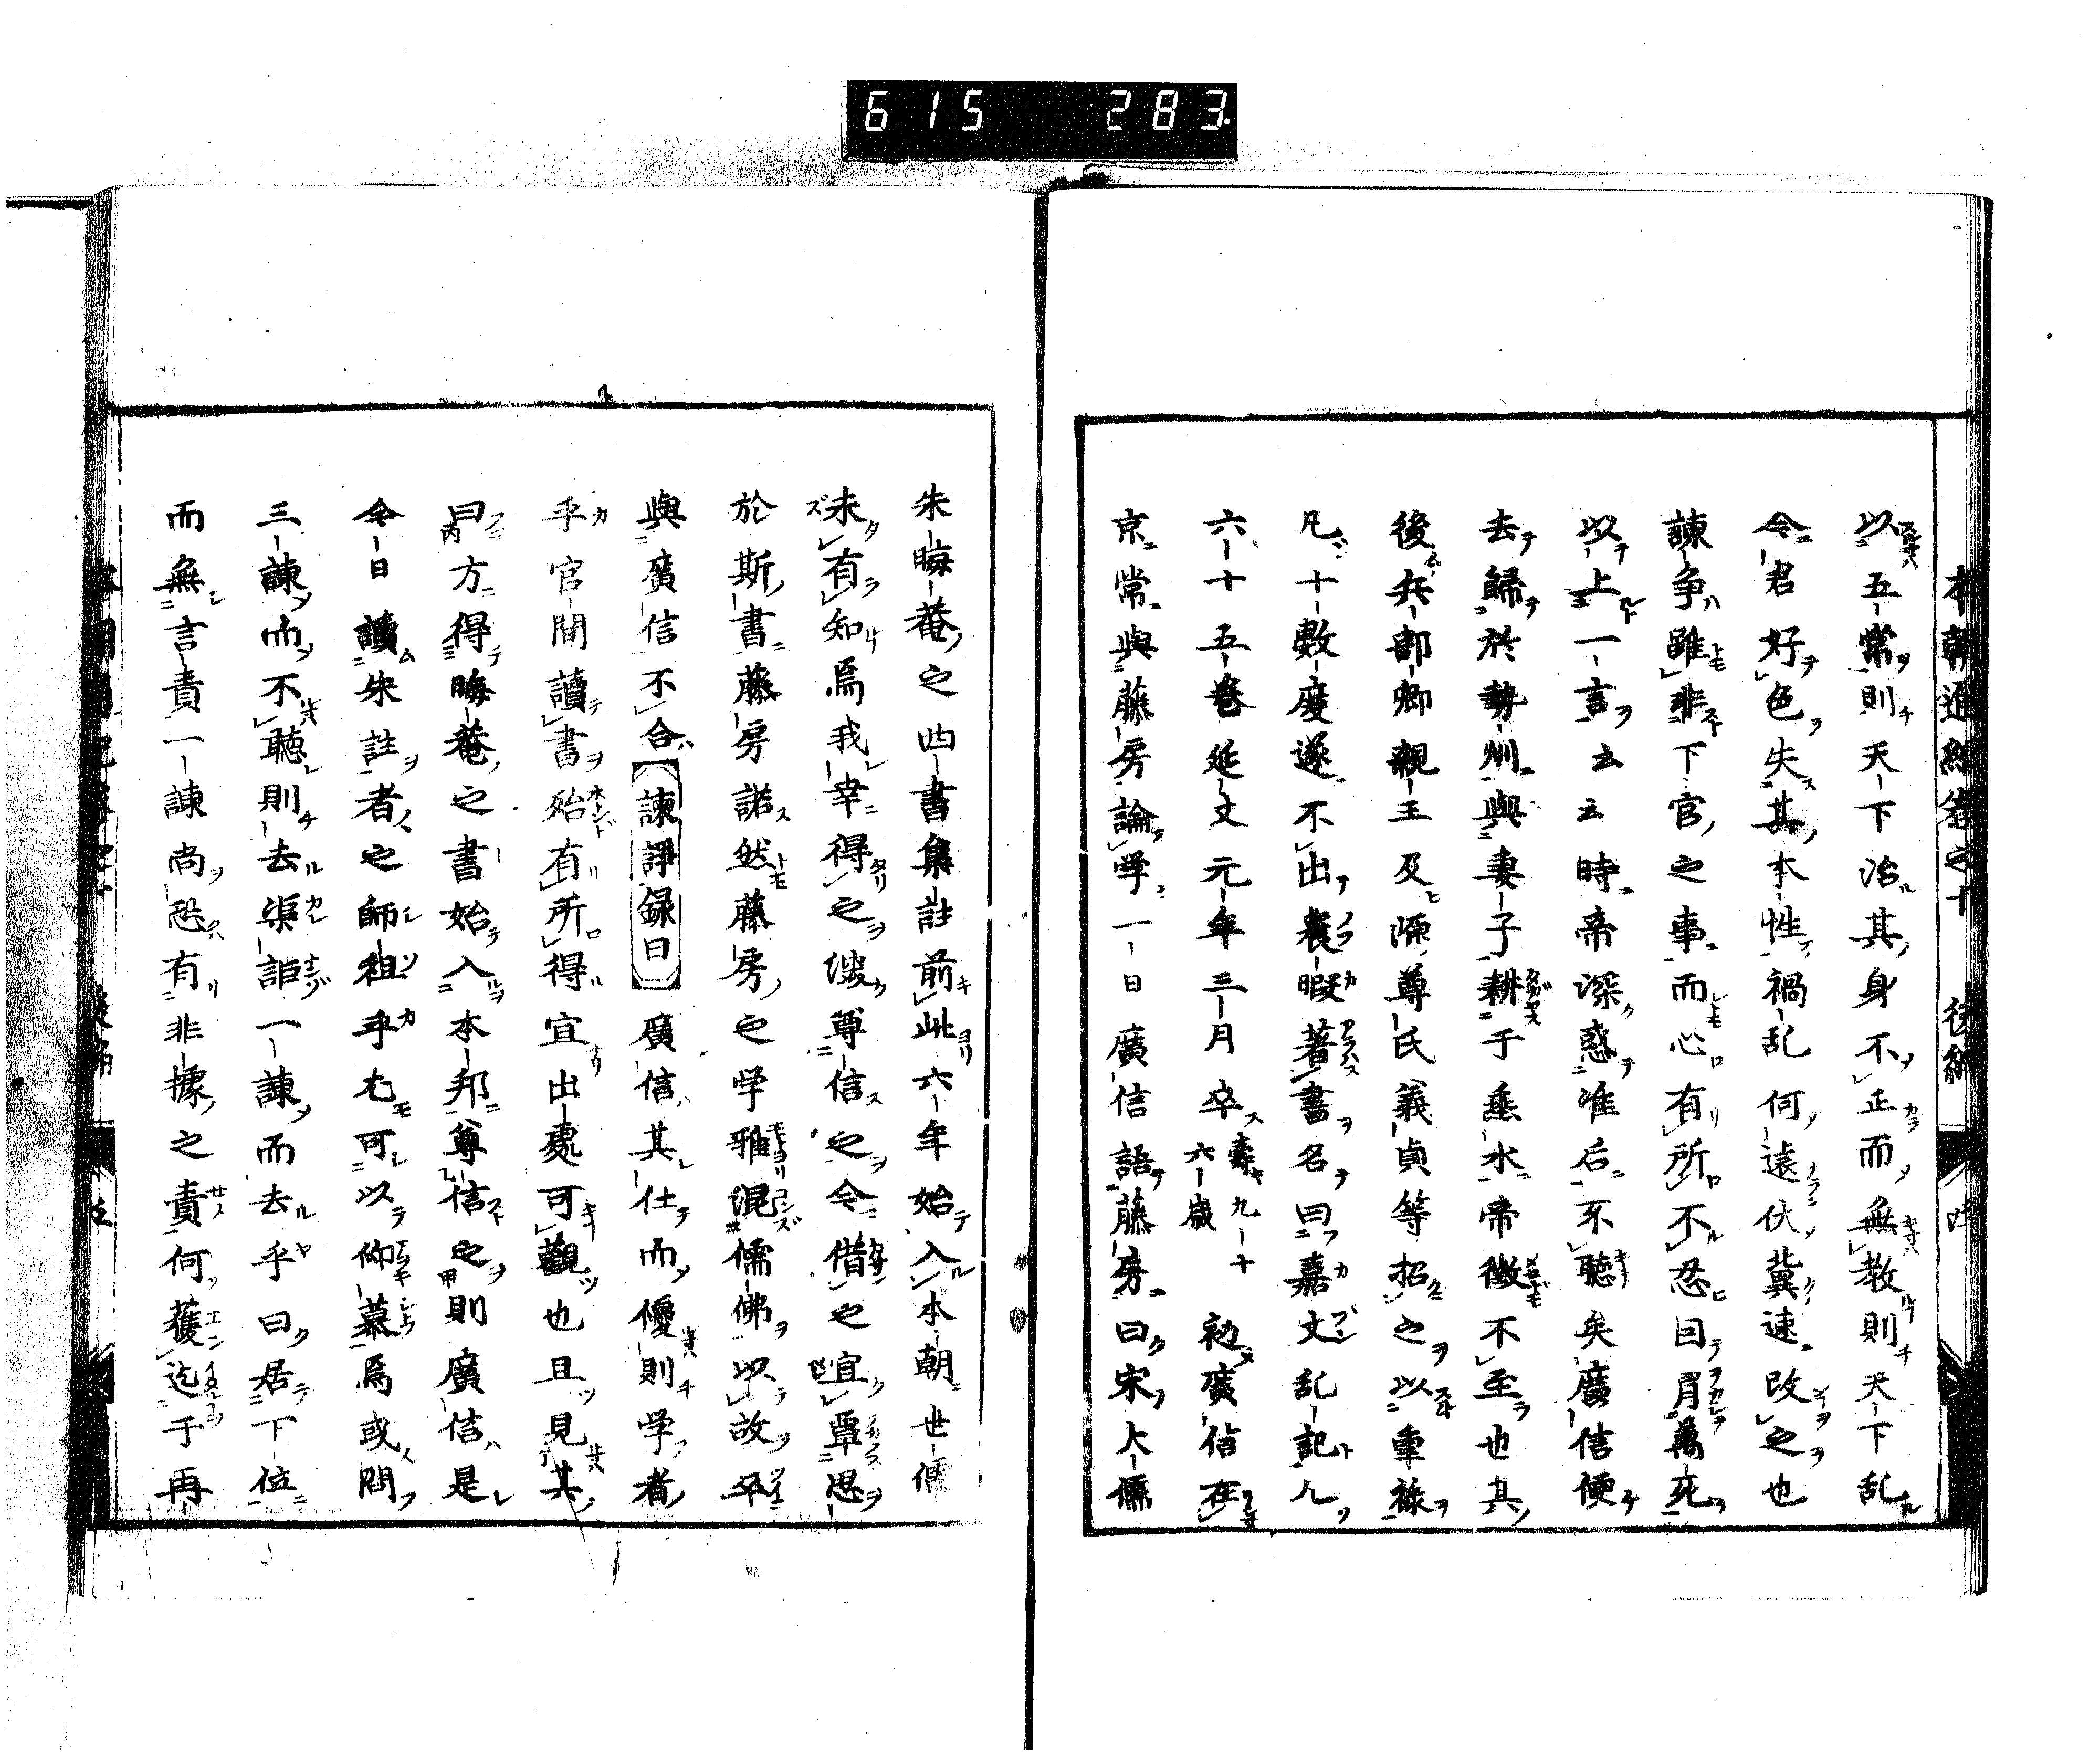 615 283.
本朝通紀卷之十 後編 四
以五常則天下治其身不正而無教則天下乱
今君好色失其本性禍乱何遠伏冀速改之也
諫争雖非下官之事而心有所不忍因冒萬死
以上一言云云時帝深惑准后不聴矣廣信便
去歸於勢州與妻子耕于垂水帝徴不至也其
後兵部卿親王及源尊氏義貞等招之以重祿
凡十數度遂不出農暇著書名曰嘉文乱記凡
六十五巻延文元年三月卒壽九十六歳初廣信在
京常與藤房論学一日廣信語藤房曰宋大儒
朱晦菴之四書集註前此六年始入本朝世儒
未有知焉我幸得之深尊信之今借之宜覃思
於斯書藤房諾然藤房之学雅混儒佛以故卒
與廣信不合諫諍録曰廣信其仕而優則学者
乎官間讀書殆有所得宜出處可觀也且見其
曰方得晦菴之書始入本邦尊信之則廣信是
今日讀朱註者之師祖乎尤可以仰慕焉或問
三諫而不聴則去渠詎一諫而去乎曰居下位
而無言責一諫尚恐有非據之責何獲迄于再